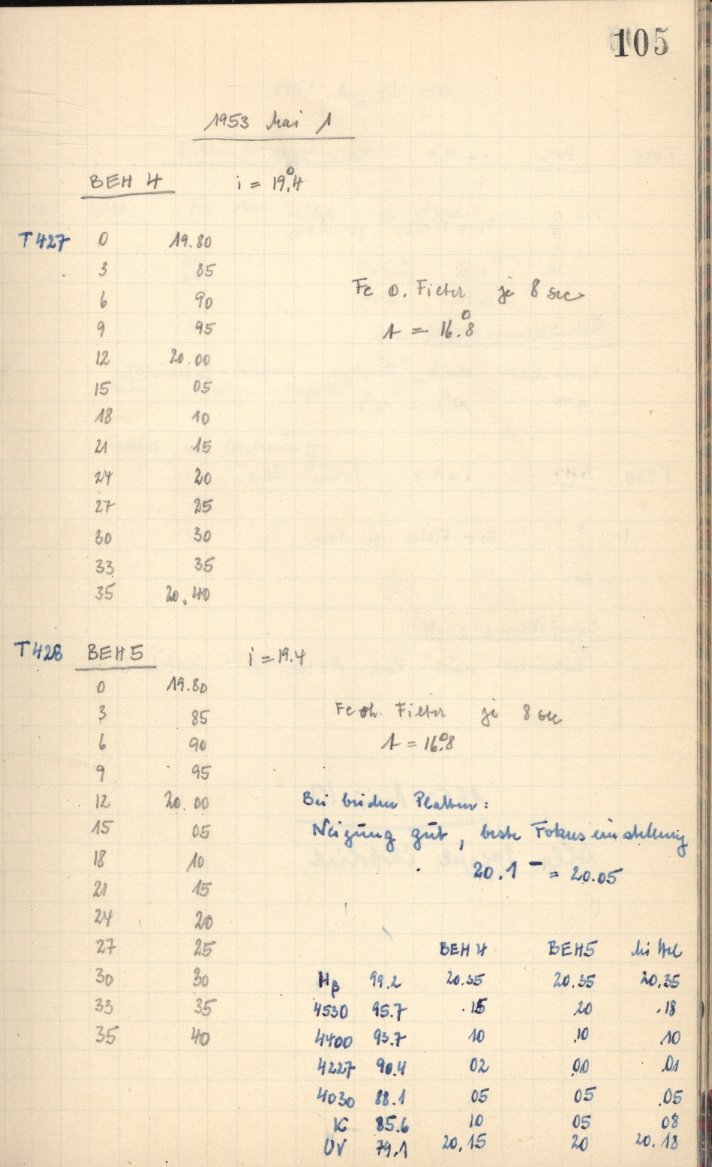 105
1953 Mai 1
BEH 4 i = 19°.4
T427 0 19.80
3 85
6 90
9 95
12 20.00
15 05
18 10
21 15
24 20
27 25
30 30
33 35
35 20.40
Fe o. Filter je 8 sec
t = 16°.8
T428 BEH5 i = 19.4
0 19.80
3 85
6 90
9 95
12 20.00
15 05
18 10
21 15
24 20
27 25
30 30
33 35
35 40
Fe oh. Filter je 8 sec
t = 16°.8
Bei beiden Platten:
Neigung gut, beste Fokuseinstellung
20.1 – = 20.05
BEH 4 BEH5 Mittel
Hβ 99.2 20.35 20.35 20.35
4530 95.7 .15 20 .18
4400 93.7 10 10 10
4227 90.4 02 00 01
4030 88.1 05 05 .05
K 85.6 10 05 08
UV 79.1 20.15 20 20.18